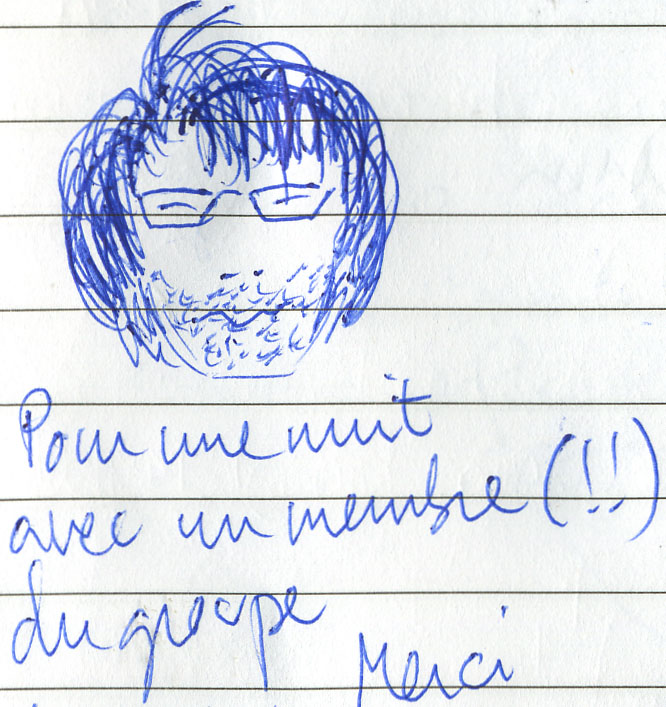 Pour une nuit
avec un membre (!!)
du groupe
Merci